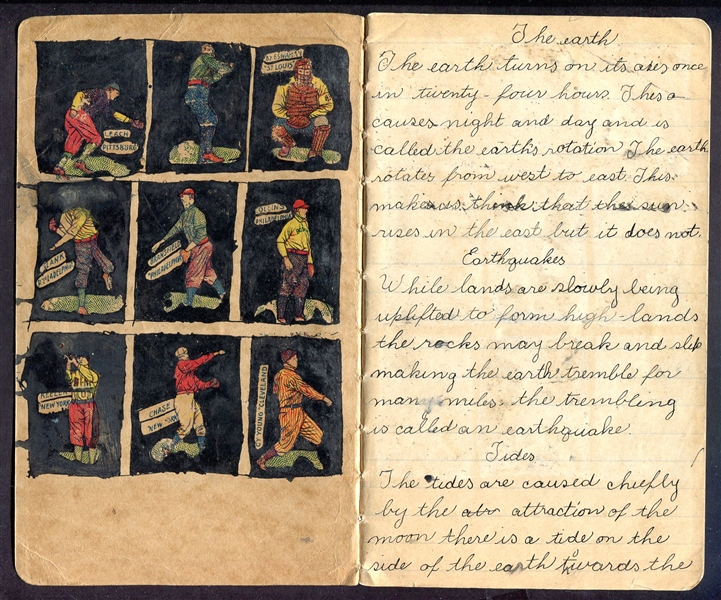 LEACH
PITTSBURG
ST LOUIS
PLANK
PHILADELPHIA
PHILADELPHIA
COLLINS
PHILADELPHIA
KEELER
NEW YORK
CHASE
NEW YORK
CY YOUNG CLEVELAND
The earth
The earth turns on its axes once
in twenty-four hours. This
causes night and day and is
called the earth's rotation The earth
rotates from west to east. This
makes us think that the sun
rises in the east but it does not.
Earthquakes
While lands are slowly being
uplifted to form high-lands
the rocks may break and slip
making the earth tremble for
many miles. the trembling
is called an earthquake.
Tides
The tides are caused chiefly
by the attraction of the
moon there is a tide on the
side of the earth towards the